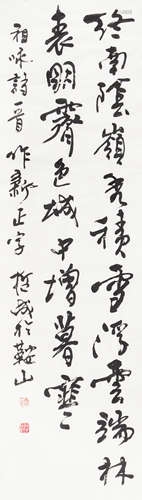 终南阴岭秀积雪浮云端林
表明霁色城中增暮寒
祖咏诗一首 作新正字 哲成行鞍山